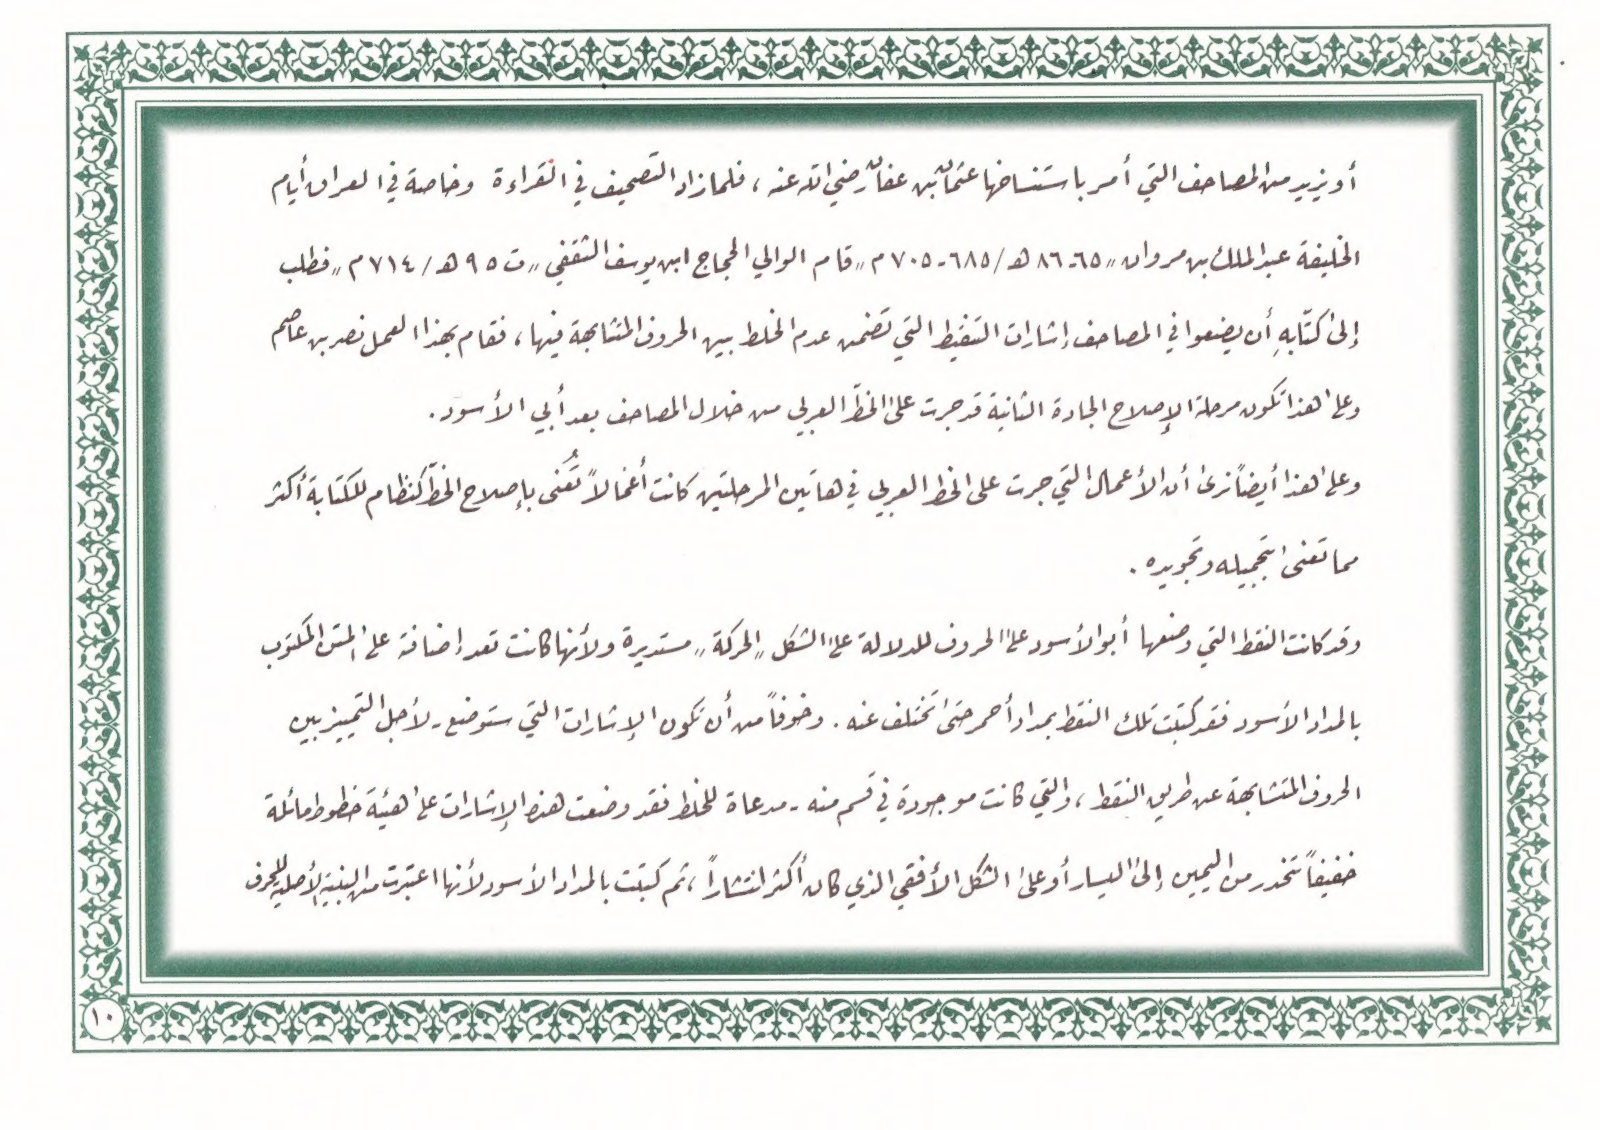 أو يزيد من المصاحف التي أمر باستنساخها عثمان بن عفان رضي الله عنه ، فلما زاد التصحيف في القراءة وخاصة في العراق أيام
الخليفة عبد الملك بن مروان ,, ٦٥-٨٦ هـ / ٦٨٥-٧٠٥ م ,, قام الوالي الحجاج ابن يوسف الثقفي ,, ت ٩٥ هـ / ٧١٤ م ,, فطلب
إلى كتّابهِ أن يضعوا في المصاحف إشارات التنقيط التي تضمن عدم الخلط بين الحروف المتشابهة فيها ، فقام بهذا العمل نصر بن عاصم
وعلى هذا تكون مرحلة الإصلاح الجادة الثانية قد جرت على الخطّ العربي من خلال المصاحف بعد أبي الأسود .
وعلى هذا أيضاً نرى أن الأعمال التي جرت على الخط العربي في هاتين المرحلتين كانت أعمالاً تُعنى بإصلاح الخطّ كنظام للكتابة أكثر
مما تعنى بتجميله وتجويده .
وقد كانت النقط التي وضعها أبو الأسود على الحروف للدلالة على الشكل ,, الحركة ,, مستديرة ولأنها كانت تعد إضافة على المتن المكتوب
بالمداد الأسود فقد كتبت تلك النقط بمداد أحمر حتى تختلف عنه . وخوفاً من أن تكون الإشارات التي ستوضع - لأجل التمييز بين
الحروف المتشابهة عن طريق النقط ، والتي كانت موجودة في قسم منه - مدعاة للخلط فقد وضعت هذه الإشارات على هيئة خطوط مائلة
خفيفاً تنحدر من اليمين إلى اليسار أو على الشكل الأفقي الذي كان أكثر انتشاراً ، ثم كتبت بالمداد الأسود لأنها اعتبرت من البنية الأصلية للحرف
١٠